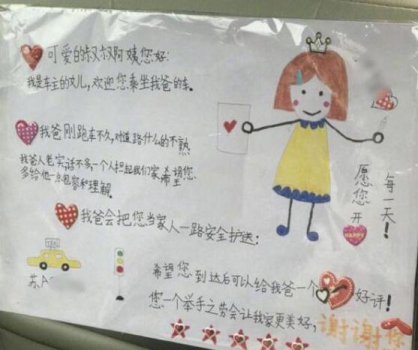 可爱的叔叔阿姨您好:
我是车主的女儿,欢迎您乘坐我爸的车。
我爸刚跑车不久,对道路什么的不熟
我爸人老实,话不多,一个人担起我们家,希望您
多给他一点包容和理解。
我爸会把您当家人一路安全护送!
希望您到达后可以给我爸一个好评!
您一个举手之劳会让我家更美好,谢谢你
愿您开
HAPPY
每一天!
苏A